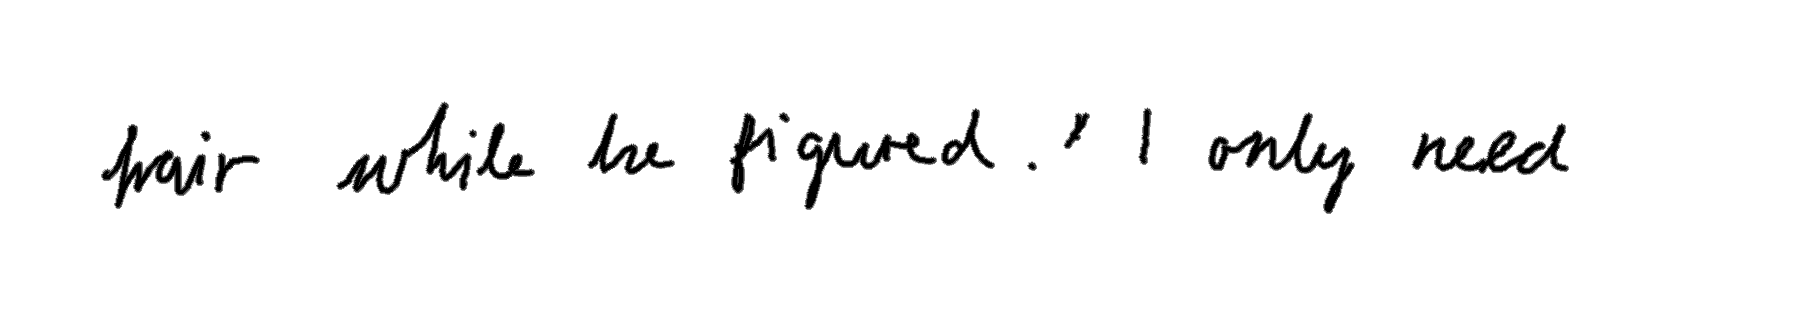 pair while he figured . " I only need